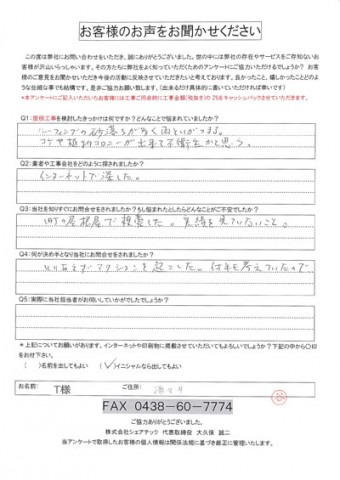 お客様のお声をお聞かせください
この度は弊社にお問い合わせをいただき、誠にありがとうございました。世の中には弊社の存在やサービスをご存知ないお
客様が沢山いらっしゃいます。その方たちに弊社をよく知っていただくためのアンケートにご協力いただけるでしょうか？ お客
様のご意見をお聞かせいただき今後の活動に反映させていただきたいと考えております。良かったこと、嬉しかったことどのよ
うな些細な事でも結構です。是非ご協力お願い致します。（出来るだけ具体的に書いていただければ幸いです）
＊本アンケートにご記入いただいたお客様には工事ご用命時に工事金額（税抜き）の2％をキャッシュバックさせていただきます。
Q1：屋根工事を検討したきっかけは何ですか？どんなことで悩まれていましたか？
ルーフィングの砂落ちが多く雨といがつまる。
コケや植物コロニーが出来て不衛生かと思う。
Q2：業者や工事会社をどのように探されましたか？
インターネットで探した。
Q3：当社を知りすぐにお問合せをされましたか？もし悩まれたとしたらどんなことがご不安でしたか？
町の屋根屋で検索した。実績を見ていないこと。
Q4：何が決め手となり当社にお問合せをされましたか？
とりあえずアクションを起こした。何年も考えていたので
Q5：実際に当社担当者がお伺いしていかがでしたでしょうか？
＊上記についてお願いがあります。インターネットや印刷物に掲載させていただいてもよろしいでしょうか？下記の中から〇印
をお付け下さい。
（　）名前を出してもよい　（✓）イニシャルなら出してもよい
お名前：　T様　ご住所：
FAX 0438－60－7774
ご協力ありがとうございました。
株式会社シェアテック 代表取締役 大久保 誠二
当アンケートで取得したお客様の個人情報は関係法規に基づき厳正に管理いたします。